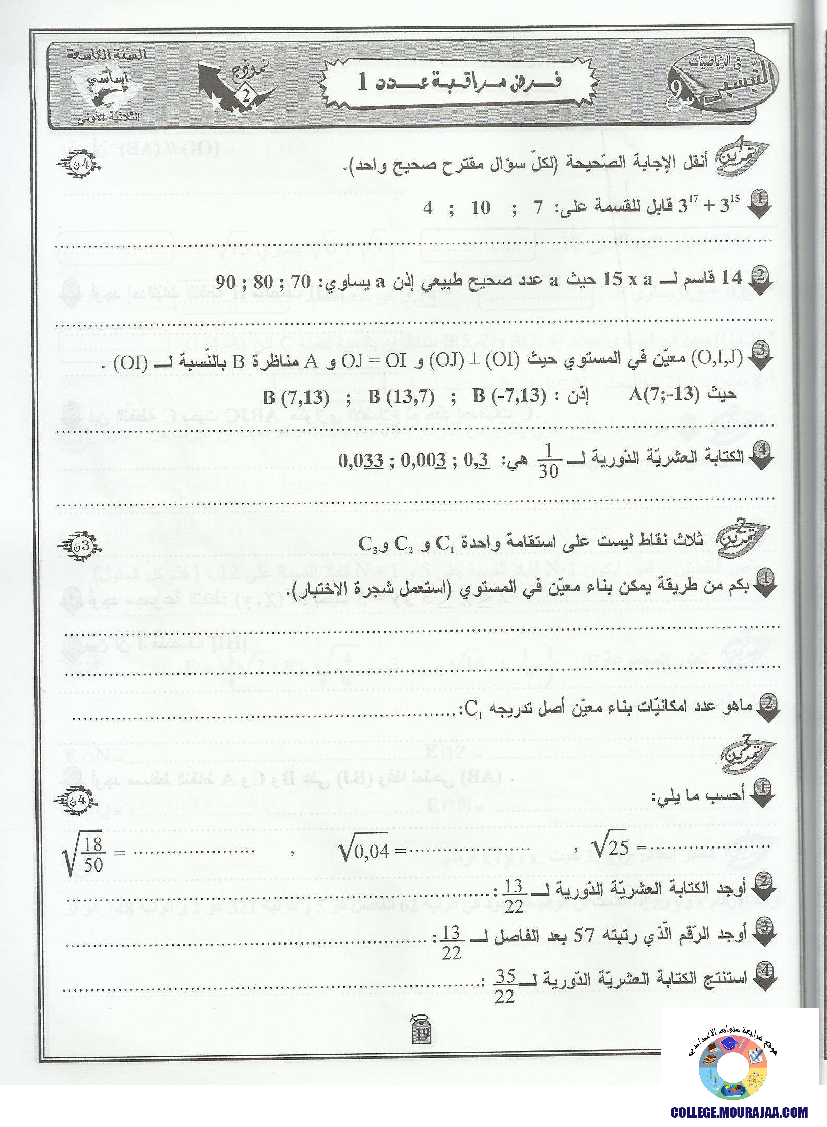 السنة التاسعة
أساسي
الثلاثية الأولى
نموذج
2
فرض مراقبة عدد 1
في الرياضيات
9
تمرين 1
أنقل الإجابة الصّحيحة (لكلّ سؤال مقترح صحيح واحد).
4ن
1 3¹⁷ + 3¹⁵ قابل للقسمة على: 7 ; 10 ; 4
2 14 قاسم لـ 15 x a حيث a عدد صحيح طبيعي إذن a يساوي: 70 ; 80 ; 90
3 (O,I,J) معيّن في المستوي حيث (OI) ⊥ (OJ) و OJ = OI و A مناظرة B بالنّسبة لـ (OI) .
حيث A(7;-13) إذن : B (-7,13) ; B (13,7) ; B (7,13)
4 الكتابة العشريّة الدّورية لـ 1/30 هي: 0,3 ; 0,003 ; 0,033
تمرين 2
ثلاث نقاط ليست على استقامة واحدة C₁ و C₂ و C₃
3ن
1 بكم من طريقة يمكن بناء معيّن في المستوي (استعمل شجرة الاختيار).
2 ماهو عدد امكانيّات بناء معيّن أصل تدريجه C₁:
تمرين 3
4ن
1 أحسب ما يلي:
√25 = , √0,04 = , √(18/50) =
2 أوجد الكتابة العشريّة الدّورية لـ 13/22 :
3 أوجد الرّقم الّذي رتبته 57 بعد الفاصل لـ 13/22 :
4 استنتج الكتابة العشريّة الدّورية لـ 35/22 :
19
موقع مراجعة
COLLEGE.MOURAJAA.COM